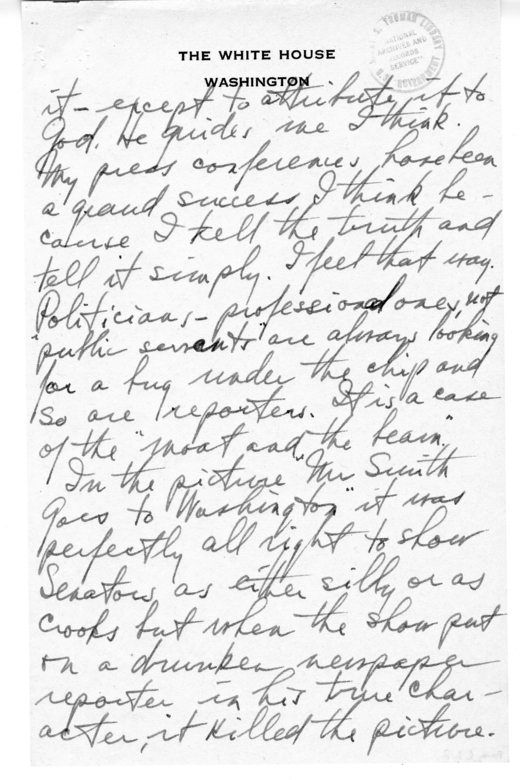 THE WHITE HOUSE
WASHINGTON
HARRY S. TRUMAN LIBRARY
NATIONAL
ARCHIVES AND
RECORDS
SERVICE
U.S. GOVERNMENT
it – except to attribute it to
God. He guides me I think.
My press conferences have been
a grand success I think be-
cause I tell the truth and
tell it simply. I feel that way.
Politicians – professional ones, not
"public servants" are always looking
for a bug under the chip and
so are reporters. It is a case
of the "moat and the beam".
In the picture "Mr Smith
Goes to Washington" it was
perfectly all right to show
Senators as either silly or as
crooks but when the show put
on a drunken newspaper
reporter in his true char-
acter, it killed the picture.